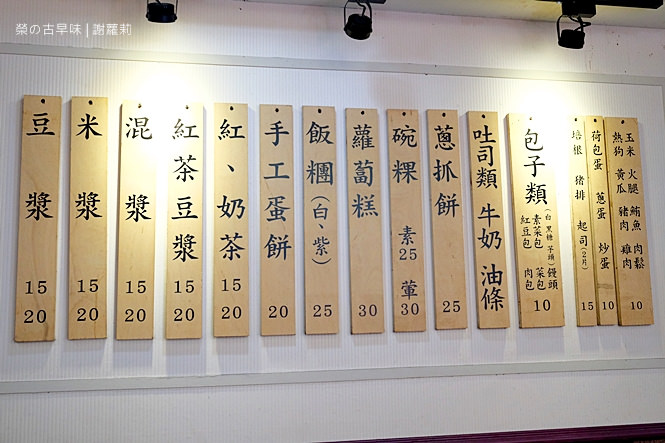 榮の古早味 | 謝蘿莉
豆漿 15 20
米漿 15 20
混漿 15 20
紅茶豆漿 15 20
紅、奶茶 15 20
手工蛋餅 20
飯糰(白、紫) 25
蘿蔔糕 30
碗粿 素25 葷30
蔥抓餅 25
吐司類 牛奶 油條
包子類 10
(白 黑糖 芋頭)饅頭
素菜包 菜包
紅豆包 肉包
培根 豬排 起司(2片) 15
荷包蛋 蔥蛋 炒蛋 10
玉米 火腿 鮪魚 肉鬆
熱狗 黃瓜 豬肉 雞肉
10